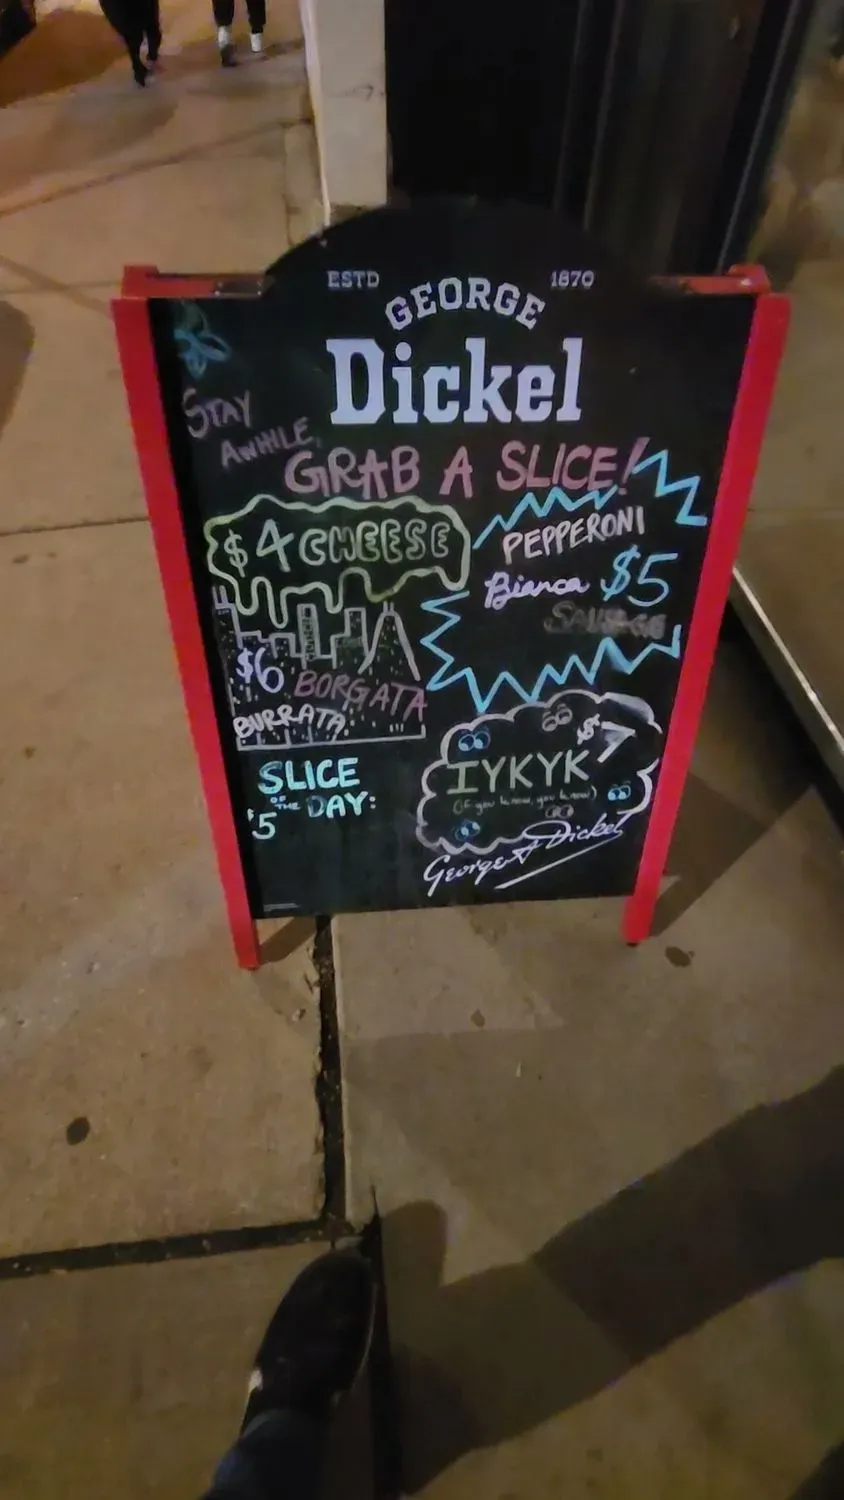 ESTD 1870
GEORGE
Dickel
STAY
AWHILE,
GRAB A SLICE!
$4 CHEESE
PEPPERONI
Bianca $5
SAUSAGE
$6 BORGATA
BURRATA
SLICE
OF THE DAY:
$5
IYKYK
(if you know, you know)
George A Dickel